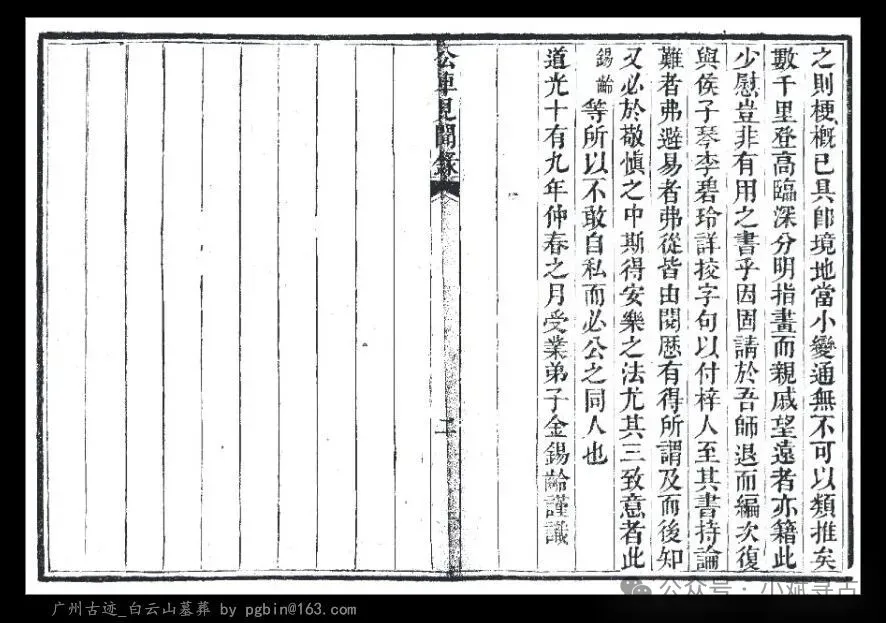 之則梗概已具卽境地當小變通無不可以類推矣
數千里登高臨深分明指畫而親戚望遠者亦籍此
少慰豈非有用之書乎因固請於吾師退而編次復
與侯子琴李碧玲詳挍字句以付梓人至其書持論
難者弗避易者弗從皆由閱歷有得所謂及而後知
又必於敬愼之中斯得安樂之法尤其三致意者此
錫齡等所以不敢自私而必公之同人也
道光十有九年仲春之月受業弟子金錫齡謹識
公車見聞錄
二
公众号：小斌寻古
广州古迹_白云山墓葬 by pgbin@163.com